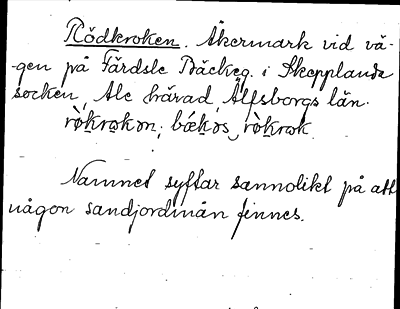 Rödkroken. Åkermark vid vä-
-gen på Färdsle Bäckeg. i Skepplanda
socken, Ale härad, Älfsborgs län.
Namnet syftar sannolikt på att
någon sandjordmån finnes.